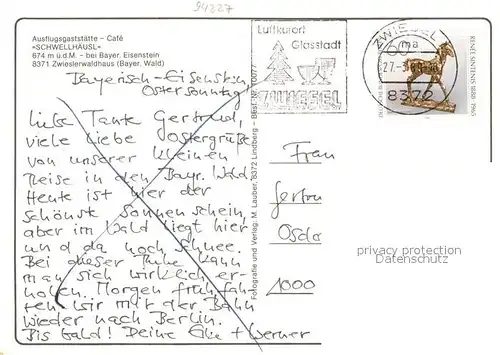 94327
Ausflugsgaststätte - Café
«SCHWELLHÄUSL»
674 m ü.d.M. - bei Bayer. Eisenstein
8371 Zwieslerwaldhaus (Bayer. Wald)
Bayerisch-Eisenstein,
Ostersonntag
Liebe Tante Gertrud,
viele liebe Ostergrüße
von unserer kleinen
Reise in den Bayr. Wald.
Heute ist hier der
schönste Sonnenschein,
aber im Wald liegt hier
und da noch Schnee.
Bei dieser Ruhe kann
man sich wirklich er-
holen. Morgen früh fah-
ren wir mit der Bahn
wieder nach Berlin.
Bis bald! Deine Elke + Werner
Fotografie und Verlag: M. Lauber, 8372 Lindberg - Best.-Nr.
Luftkurort
Glasstadt
ZWIESEL
ZWIESEL 1
ma
27.-3.
8372
60
RENÉE SINTENIS 1888-1965
Frau
Gertru
Osdo
1000
privacy protection
Datenschutz